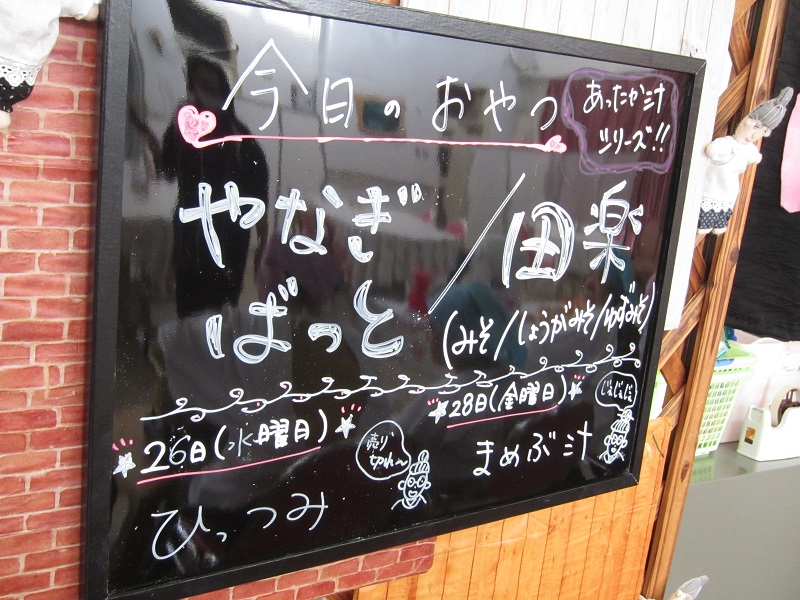 今日のおやつ
あったか汁
シリーズ!!
やなぎ
ばっと
/田楽
(みそ/しょうがみそ/ゆずみそ)
26日(水曜日)
売り
切れ〜
ひっつみ
28日(金曜日)
じぇじぇじぇ
まめぶ汁